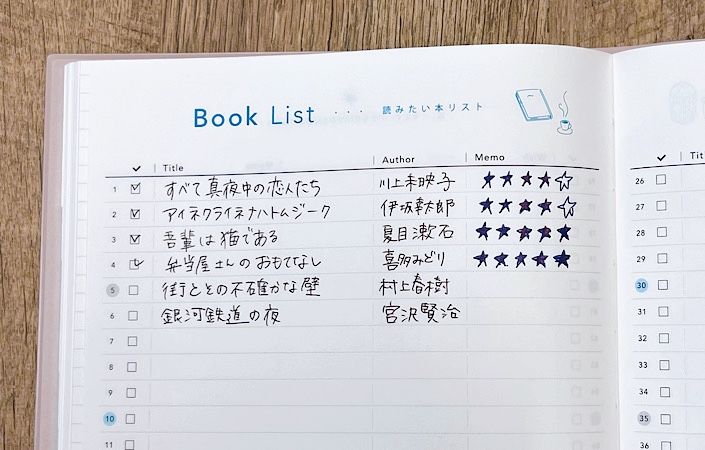 Book List ・・・ 読みたい本リスト
✓ Title Author Memo
1 ☑ すべて真夜中の恋人たち 川上未映子 ★★★★☆
2 ☑ アイネクライネナハトムジーク 伊坂幸太郎 ★★★★☆
3 ☑ 吾輩は猫である 夏目漱石 ★★★★★
4 ☑ 弁当屋さんのおもてなし 喜多みどり ★★★★★
5 □ 街とその不確かな壁 村上春樹
6 □ 銀河鉄道の夜 宮沢賢治
7 □
8 □
9 □
10 □
11 □
✓ Tit
26 □
27 □
28 □
29 □
30 □
31 □
32 □
33 □
34 □
35 □
36 □